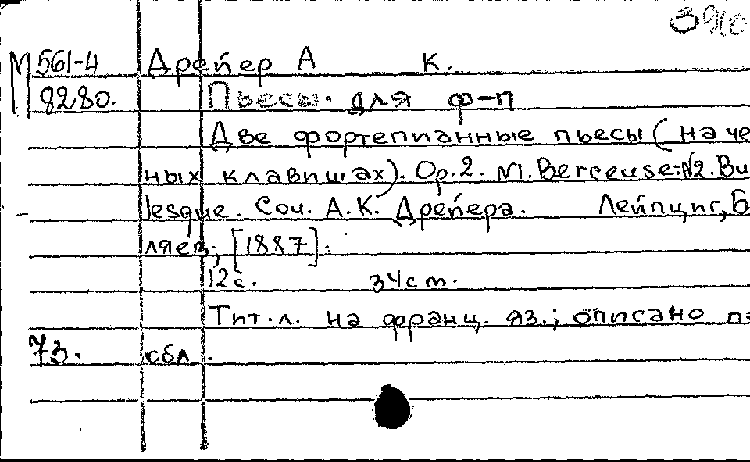 3910
М 561-4 Дрейер А К.
8280. Пьесы. для ф-п
Две фортепианные пьесы (на че
ных клавишах). Op.2. №1. Berceuse. №2. Bu
lesque. Соч. А.К. Дрейера. Лейпциг, Б
ляев, [1887].
12с. 34см.
Тит.л. на франц. яз.; описано п
73. сбл.